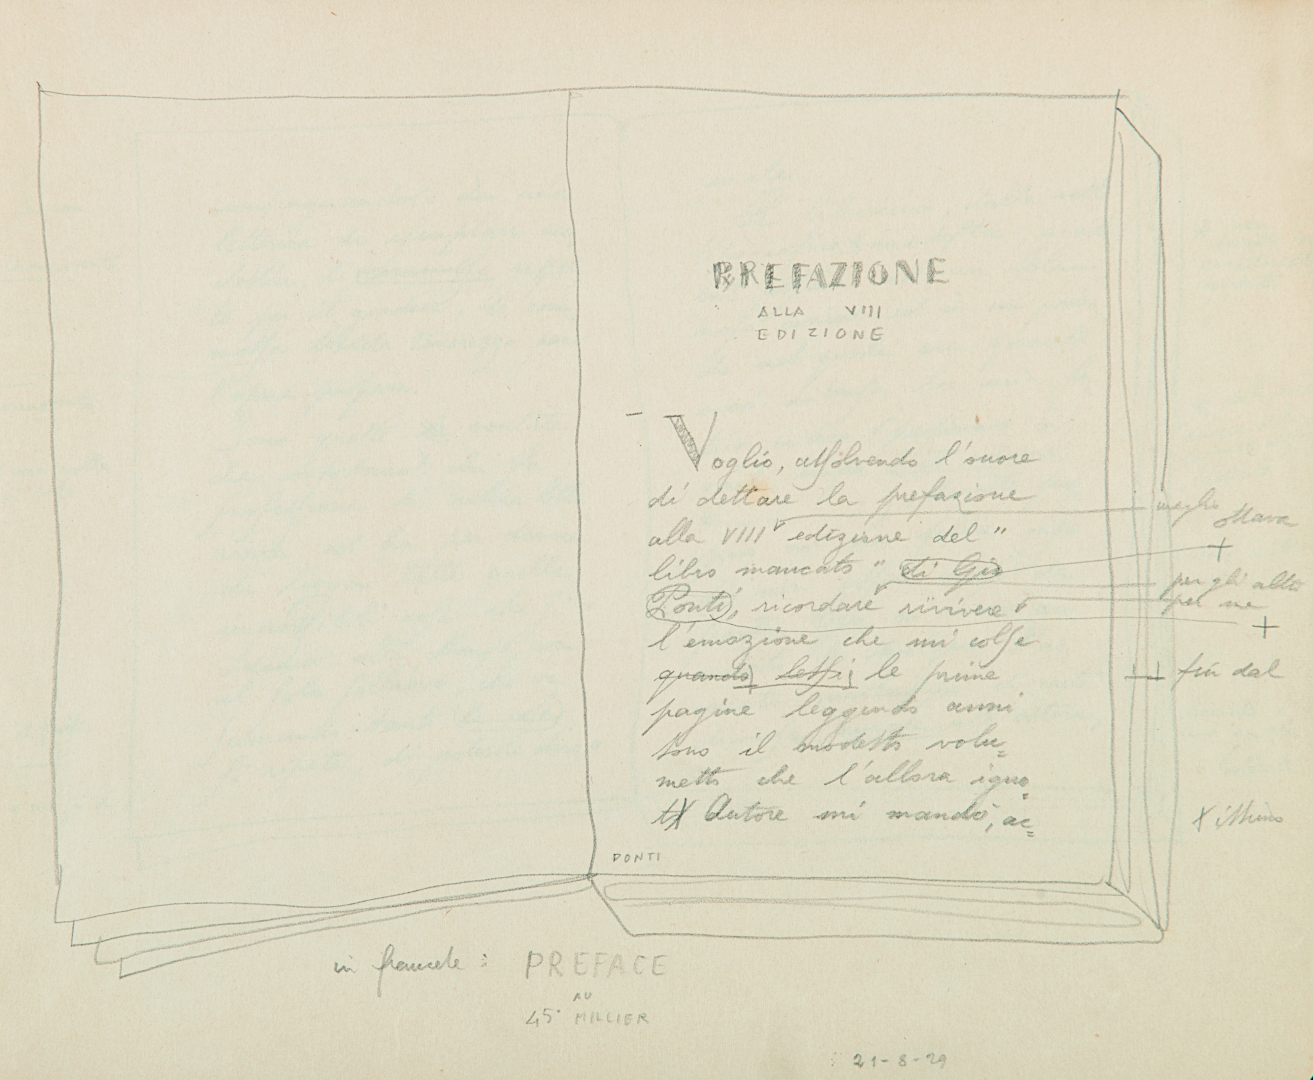 PREFAZIONE
ALLA VIII
EDIZIONE
Voglio, assolvendo l'onore
di dettare la prefazione
alla VIII edizione del "
libro mancato" di Gio
Ponti, ricordare rivivere
l'emozione che mi colse
quando lessi le prime
pagine leggendo anni
sono il modesto volu=
metto che l'allora igno=
to Autore mi mandò, ac=
PONTI
meglio ottava
+
per gli altri
per me
+
fin dal
X illustro
in francese : PREFACE
AU
45° MILLIER
21-8-29